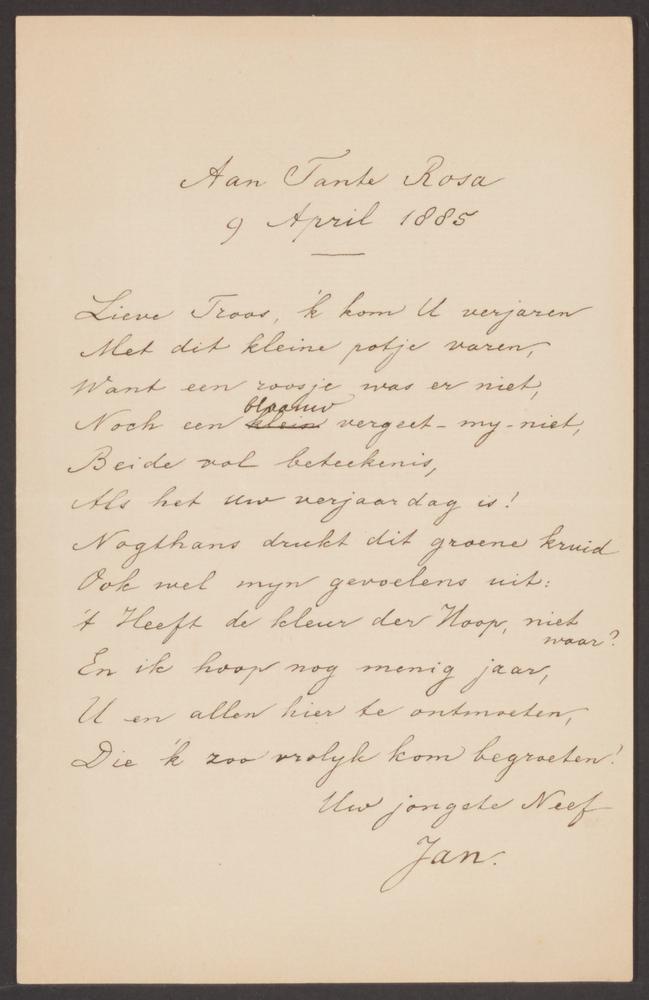 Aan Tante Rosa
9 April 1885
Lieve Troos, 'k kom U verjaren
Met dit kleine potje varen,
Want een roosje was er niet,
blaauw
Noch een klein vergeet-my-niet,
Beide vol beteekenis,
Als het uw verjaardag is!
Nogthans drukt dit groene kruid
Ook wel myn gevoelens uit:
't Heeft de kleur der Hoop, niet
waar?
En ik hoop nog menig jaar,
U en allen hier te ontmoeten,
Die 'k zoo vrolyk kom begroeten!
Uw jongste Neef
Jan.